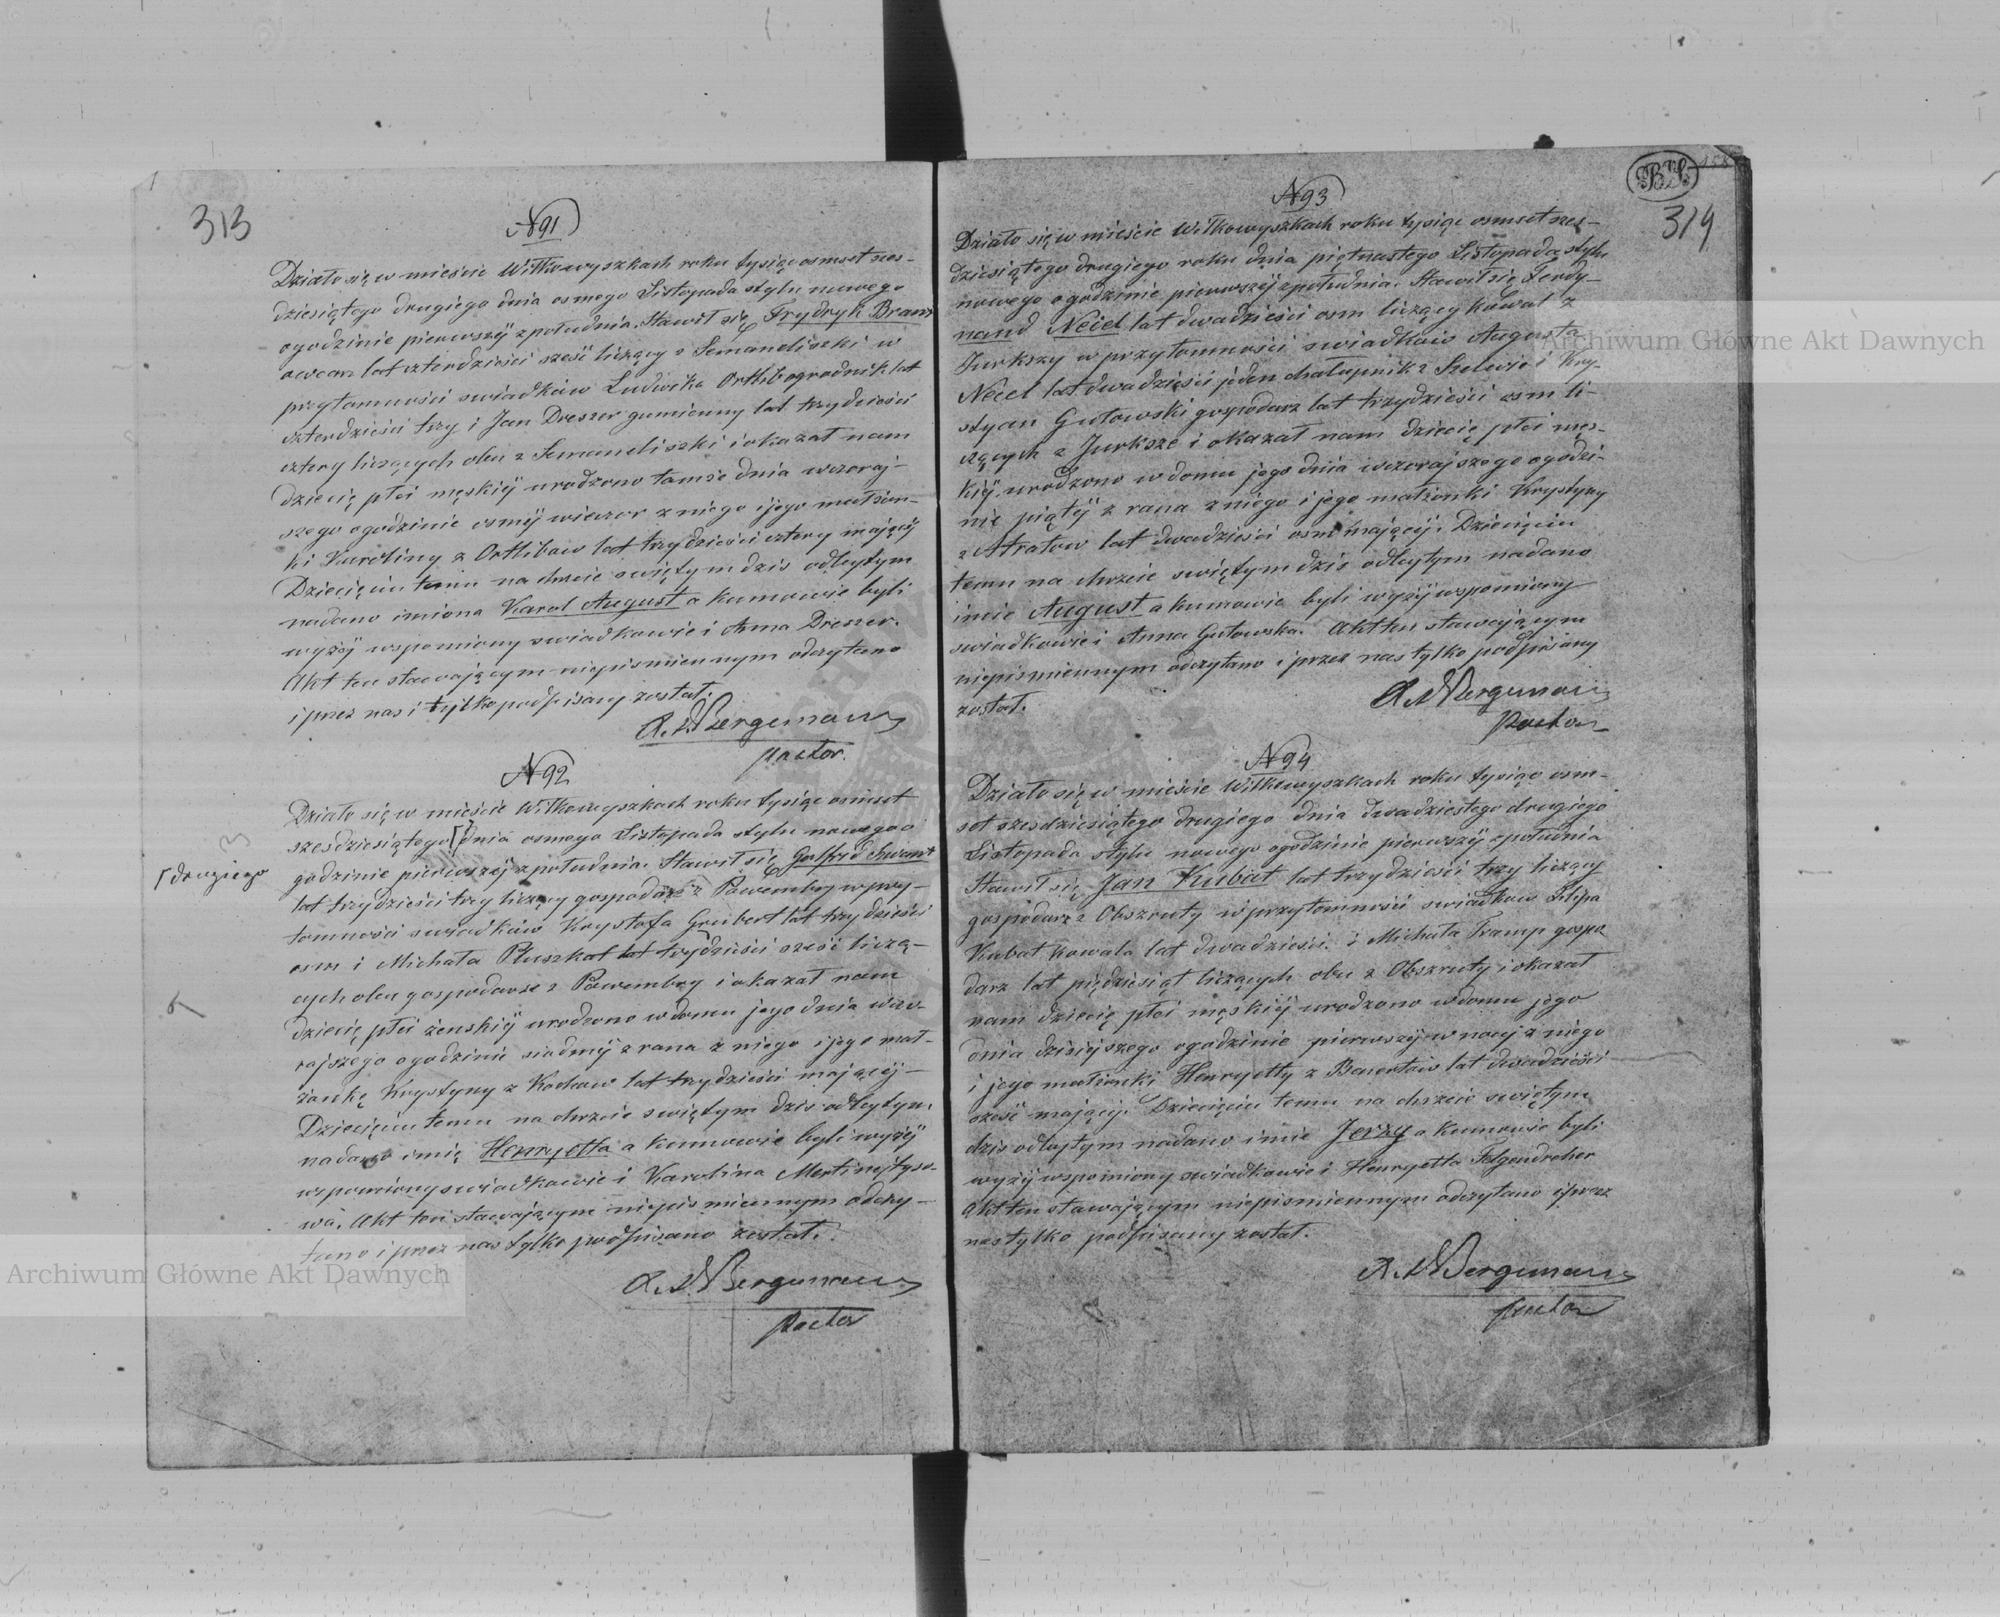 313
N 91
Działo się w mieście Wiłkowyszkach roku tysiąc osmset szes-
dziesiątego drugiego dnia osmego Listopada stylu nowego
ogodzinie pierwszéj zpołudnia. Stawił się Frydryk Braun
owczarz lat czterdzieści sześć liczący z Semaneliszki w
przytomności swiadków Ludwika Orthb ogrodnik lat
czterdzieści trzy i Jan Dreszer gumienny lat trzydzieści
cztery liczących obu z Semaneliszki i okazał nam
dziecię płci męskiéj urodzono tamże dnia wczoraj-
szego ogodzinie osméj wieczor z niego i jego małżon-
ki Karoliny z Orthbow lat trzydzieści cztery mającéj
Dziecięciu temu na chrzcie swiętym dzis odbytym
nadano imiona Karol August a kumowie byli
wyżéj wspomiony swiadkowie i Anna Dreszer.
Akt ten stawającym niepismiennym odczytano
i przez nas i tylko podpisany został.
A. W. Bergemann
pastor.
N 92
Działo się w mieście Wiłkowyszkach roku tysiąc osmset
szesdziesiątego dnia osmego Listopada stylu nowego o
drugiego
godzinie pierwszéj zpołudnia. Stawił się Gotfrid Szwant
lat trzydzieści trzy liczący gospodarz z Powembry w przy-
tomności swiadków Krysztofa Guibert lat trzydzieści
osm i Michała Pluszkat lat trzydzieści sześć liczą-
cych obu gospodarze z Powembry i okazał nam
dziecię płci żenskiéj urodzono w domu jego dnia wczo-
rajszego ogodzinie siodméj z rana z niego i jego mał-
żonkę Krystyny z Kochow lat trzydzieści mającéj-
Dziecięciu temu na chrzcie swiętym dzis odbytym
nadano imię Henryetta a kumowie byli wyżéj
wspomiony swiadkowie i Karolina
wa. Akt ten stawającym niepismiennym odczy-
tano i przez nas tylko podpisano został.
A. W. Bergemann
pastor
319
N 93
Działo się w mieście Wiłkowyszkach roku tysiąc osmset szes-
dziesiątego drugiego roku dnia piętnastego Listopada stylu
nowego ogodzinie pierwszéj zpołudnia. Stawił się Ferdy-
nand Necel lat dwadzieści osm liczący kowal z
Jurkszy w przytomności swiadków Augusta
Necel lat dwadzieści jeden chałupnik z i Kry-
styan Gutowski gospodarz lat trzydzieści osm li-
czących z Jurksze i okazał nam dziecię płci męs-
kiéj urodzono w domu jego dnia wczorajszego ogodzi-
nie piątéj z rana z niego i jego małżonki Krystyny
z Atratow lat dwadzieści osm mającéj. Dziecięciu
temu na chrzcie swiętym dzis odbytym nadano
imie August a kumowie byli wyżéj wspomiony
swiadkowie i Anna Gutowska. Akt ten stawającym
niepismiennym odczytano i przez nas tylko podpisany
został.
A. W. Bergemann
Pastor
N 94
Działo się w mieście Wiłkowyszkach roku tysiąc osm-
set szesdziesiątego drugiego dnia dwadziestego drugiego
Listopada stylu nowego ogodzinie pierwszéj zpołudnia
Stawił się Jan Kubat lat trzydzieści trzy liczący
gospodarz z Obszruty w przytomności swiadkow Filipa
Kubat kowala lat dwadzieści. i Michała Tramp gospo
darz lat piędziesiąt liczących obu z Obszruty i okazał
nam dziecię płci męskiéj urodzono w domu jego
dnia dzisiejszego ogodzinie pierwszéj w nocy z niego
i jego małżonki Henryetty z lat dwadzieści
sześć mającéj. Dziecięciu temu na chrzcie swiętym
dzis odbytym nadano imie Jerzy a kumowie byli
wyżéj wspomiony swiadkowie i Henryetta Felgendreher
Akt ten stawającym niepismiennym odczytano i przez
nas tylko podpisany został.
A. W. Bergemann
pastor
Archiwum Główne Akt Dawnych
Archiwum Główne Akt Dawnych